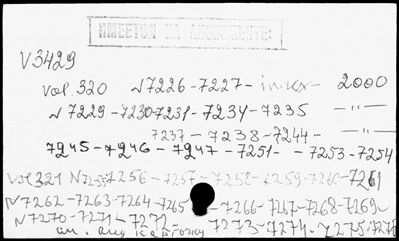 ИМЕЕТСЯ НА
V3429
vol. 320 N7226-7227- index- 2000
N7229-7230-7231-7234-7235 -"-
7237-7238-7244- -"-
7245-7246-7247-7251- -7253-7254
vol 321 N7255-7256-7257-7258-7259-7260-7261
N7262-7263-7264-7265 -7266-7267-7268-7269-
N7270-7271-7272- 7273-7274-7275-7276